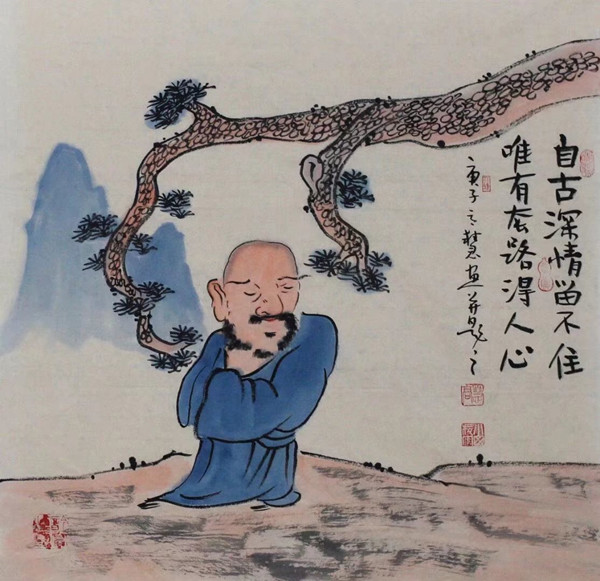 自古深情留不住
唯有套路得人心
庚子之慧画并题之